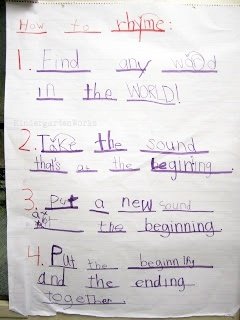 How to rhyme:
1. Find any word
in the WORLD!
KindergartenWorks
2. Take the sound
that's at the begining.
3. Put a new sound
at the beginning.
4. Put the beginning
and the ending
together.